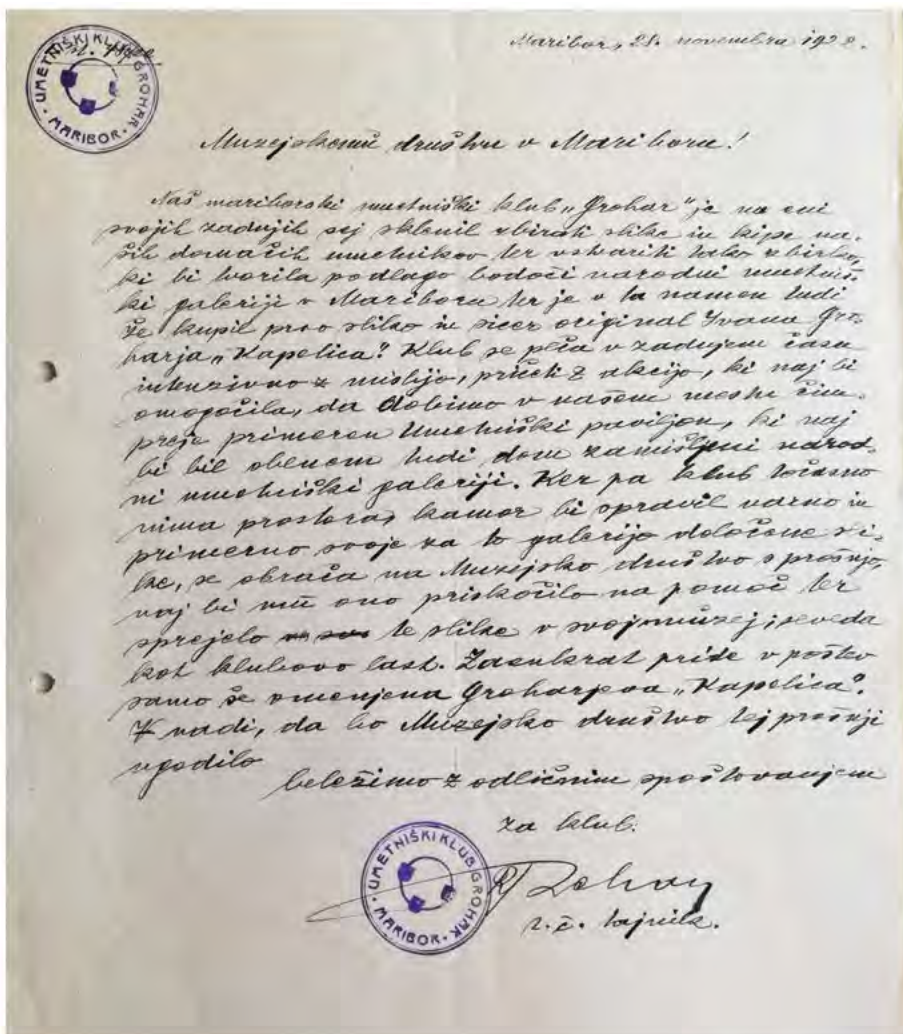 UMETNIŠKI KLUB GROHAR
MARIBOR
Maribor, 28. novembra 192
Muzejskemu društvu v Mariboru!
Naš mariborski umetniški klub „Grohar" je na eni
svojih zadnjih sej sklenil zbirati slike in kipe na-
ših domačih umetnikov ter ustvariti tako zbirko,
ki bi tvorila podlago bodoči narodni umetniš-
ki galeriji v Mariboru ter je v ta namen tudi
že kupil prvo sliko in sicer original Ivana Gro-
harja „Kapelica". Klub se peča v zadnjem času
intenzivno z mislijo, pričeti z akcijo, ki naj bi
omogočila, da dobimo v našem mestu čim-
preje primeren Umetniški paviljon, ki naj
bi bil obenem tudi dom zamišljeni narod-
ni umetniški galeriji. Ker pa klub točasno
nima prostora, kamor bi spravil varno in
primerno svoje za to galerijo določene sli-
ke, se obrača na Muzejsko društvo s prošnjo,
naj bi mu ono priskočilo na pomoč ter
sprejelo te slike v svoj muzej; seveda
kot klubovo last. Zaenkrat pride v poštev
samo še omenjena Groharjeva „Kapelica".
V nadi, da bo Muzejsko društvo tej prošnji
ugodilo
beležimo z odličnim spoštovanjem
za klub:
UMETNIŠKI KLUB GROHAR
MARIBOR
t. č. tajnik.